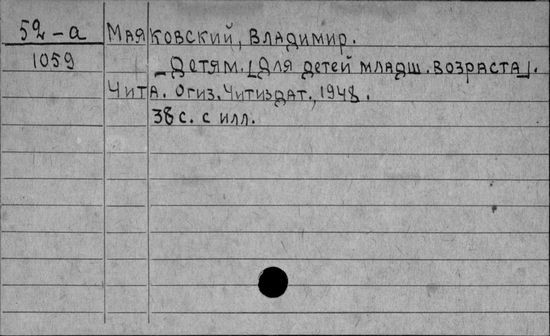 52-а Маяковский, Владимир.
1059 Детям. [Для детей младш. возраста].
Чита. Огиз. Читиздат., 1948.
38 с. с илл.